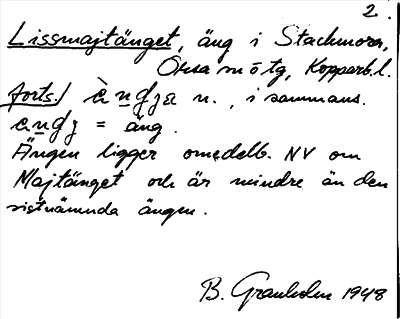 2.
Lissmajtänget, äng i Stackmora,
Orsa sn ö tg, Kopparb. l.
forts./ ang n., i sammans.
= äng.
Ängen ligger omedelb. NV om
Majtänget och är mindre än den
sistnämnda ängen.
B. Granholm 1948